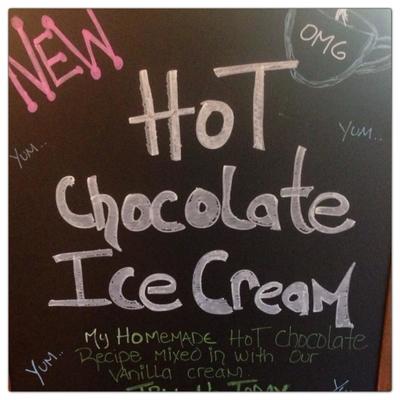 NEW
OMG
HoT
YUM..
YUM..
Chocolate
Ice Cream
My HOMEMADE HoT Chocolate
Recipe mixed in with our
Vanilla cream.
YUM..